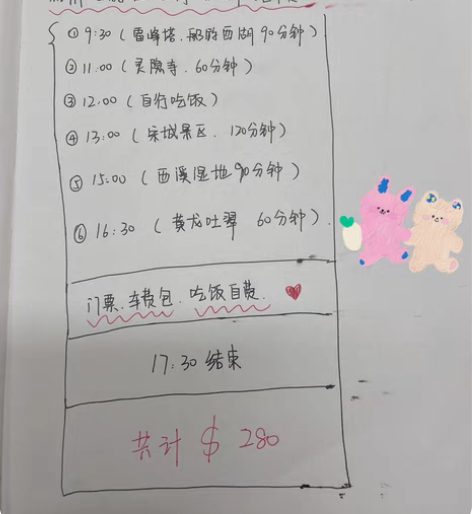 ① 9:30 (雷峰塔.船游西湖 90分钟)
② 11.00 (灵隐寺. 60分钟)
③ 12.00 (自行吃饭)
④ 13:00 (宋城景区. 120分钟)
⑤ 15.00 (西溪湿地 90分钟)
⑥ 16:30 (黄龙吐翠 60分钟).
门票.车费包.吃饭自费.
17:30 结束
共计 $ 280